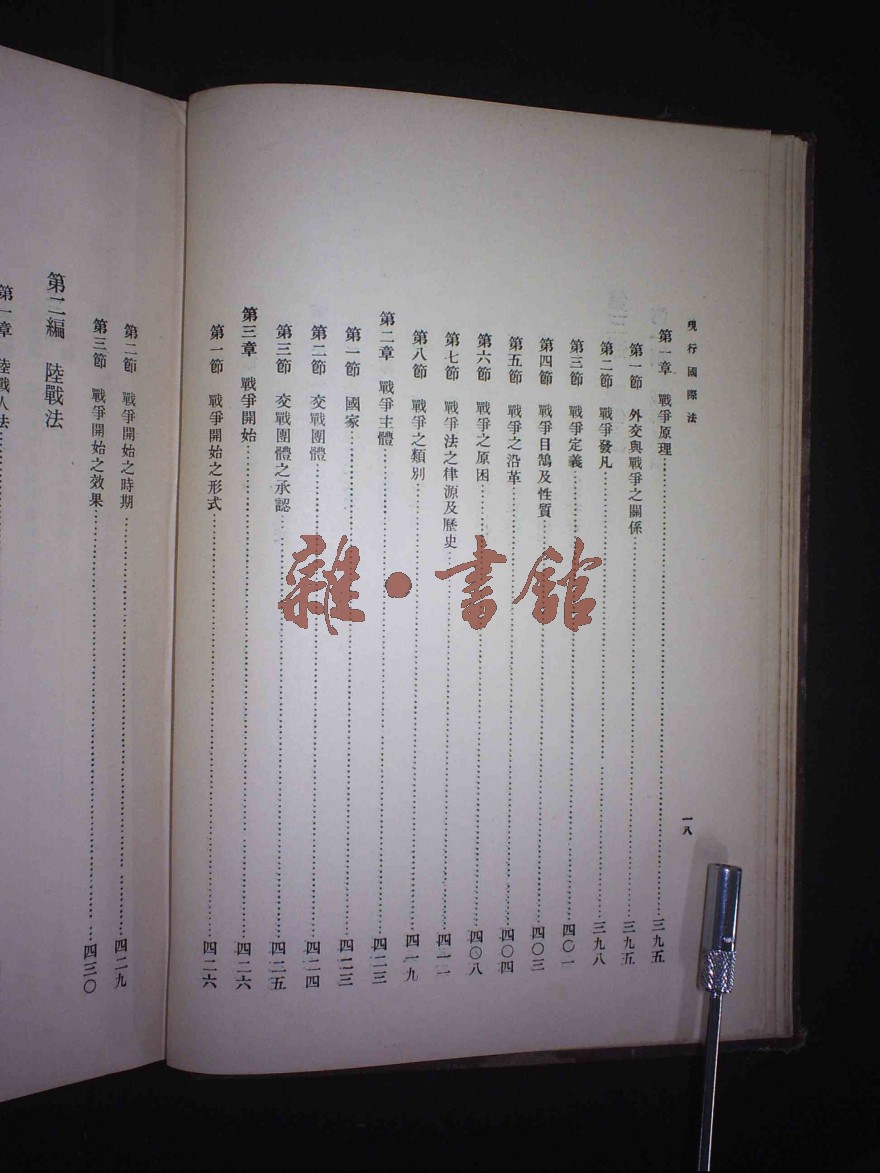 現行國際法
一八
第一章 戰爭原理……三九五
第一節 外交與戰爭之關係……三九五
第二節 戰爭發凡……三九八
第三節 戰爭定義……四〇一
第四節 戰爭目鵠及性質……四〇三
第五節 戰爭之沿革……四〇四
第六節 戰爭之原因……四〇八
第七節 戰爭法之律源及歷史……四一一
第八節 戰爭之類別……四一九
第二章 戰爭主體……四二三
第一節 國家……四二三
第二節 交戰團體……四二四
第三節 交戰團體之承認……四二五
第三章 戰爭開始……四二六
第一節 戰爭開始之形式……四二六
第二節 戰爭開始之時期……四二九
第三節 戰爭開始之效果……四三〇
第二編 陸戰法
第一章 陸戰人法
雜·書館